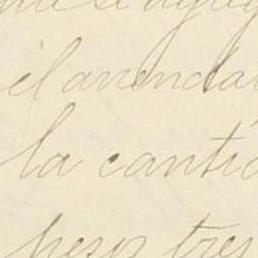 el arrenda
la canti
pesos tres